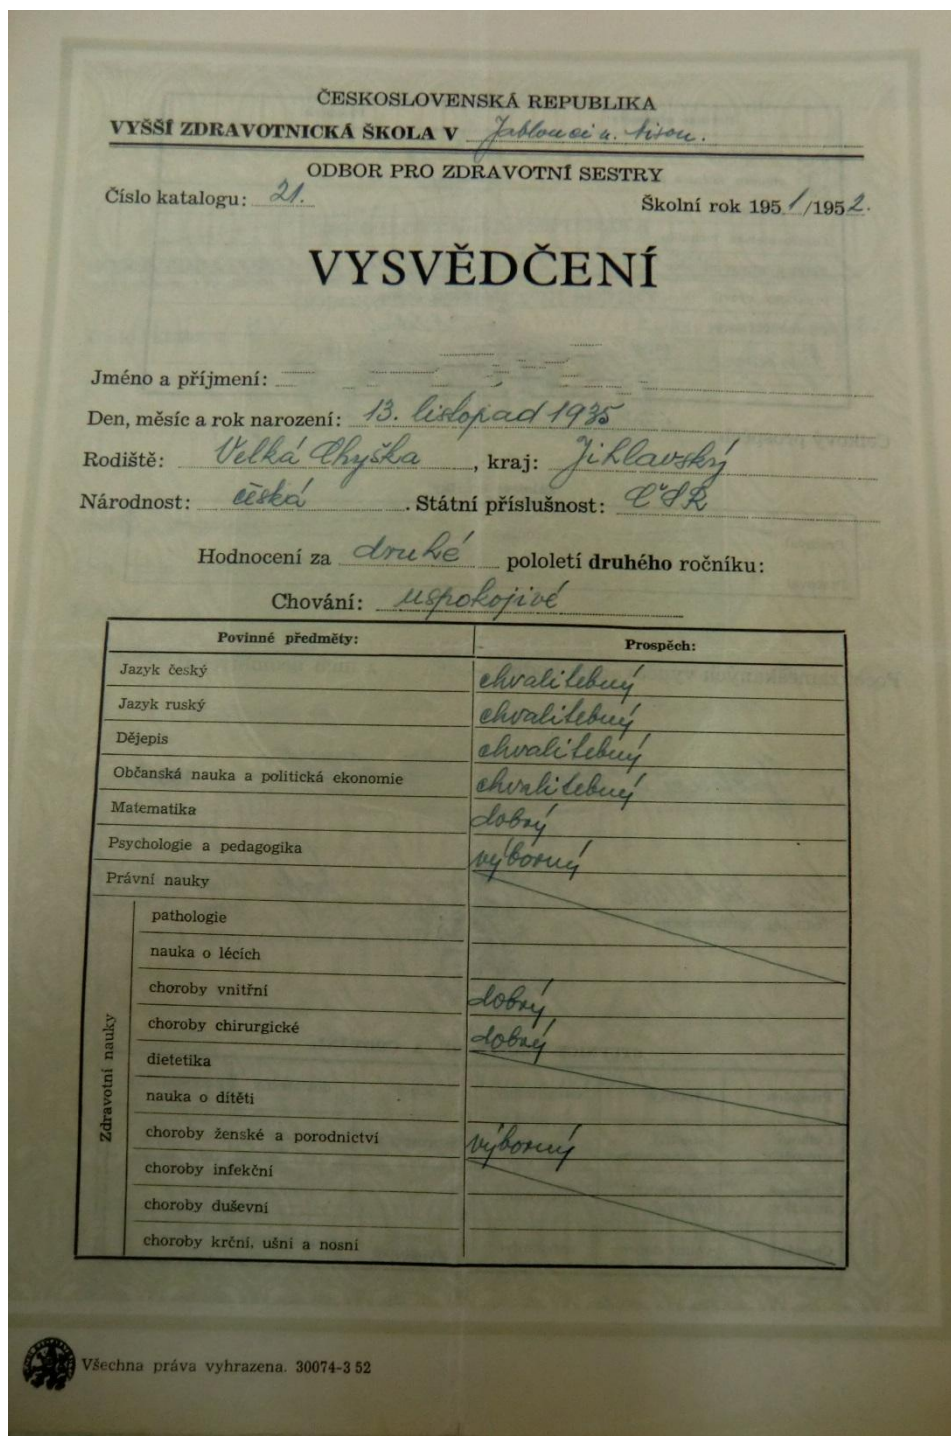 ČESKOSLOVENSKÁ REPUBLIKA
VYŠŠÍ ZDRAVOTNICKÁ ŠKOLA V Jablonci n. Nisou.
ODBOR PRO ZDRAVOTNÍ SESTRY
Číslo katalogu: 21. Školní rok 1951/1952.
VYSVĚDČENÍ
Jméno a příjmení:
Den, měsíc a rok narození: 13. listopad 1935
Rodiště: Velká Chyška, kraj: Jihlavský
Národnost: česká. Státní příslušnost: ČSR
Hodnocení za druhé pololetí druhého ročníku:
Chování: uspokojivé
Povinné předměty: Prospěch:
Jazyk český chvalitebný
Jazyk ruský chvalitebný
Dějepis chvalitebný
Občanská nauka a politická ekonomie chvalitebný
Matematika dobrý
Psychologie a pedagogika výborný
Právní nauky
Zdravotní nauky
pathologie
nauka o lécích
choroby vnitřní dobrý
choroby chirurgické dobrý
dietetika
nauka o dítěti
choroby ženské a porodnictví výborný
choroby infekční
choroby duševní
choroby krční, ušní a nosní
Všechna práva vyhrazena. 30074-3 52